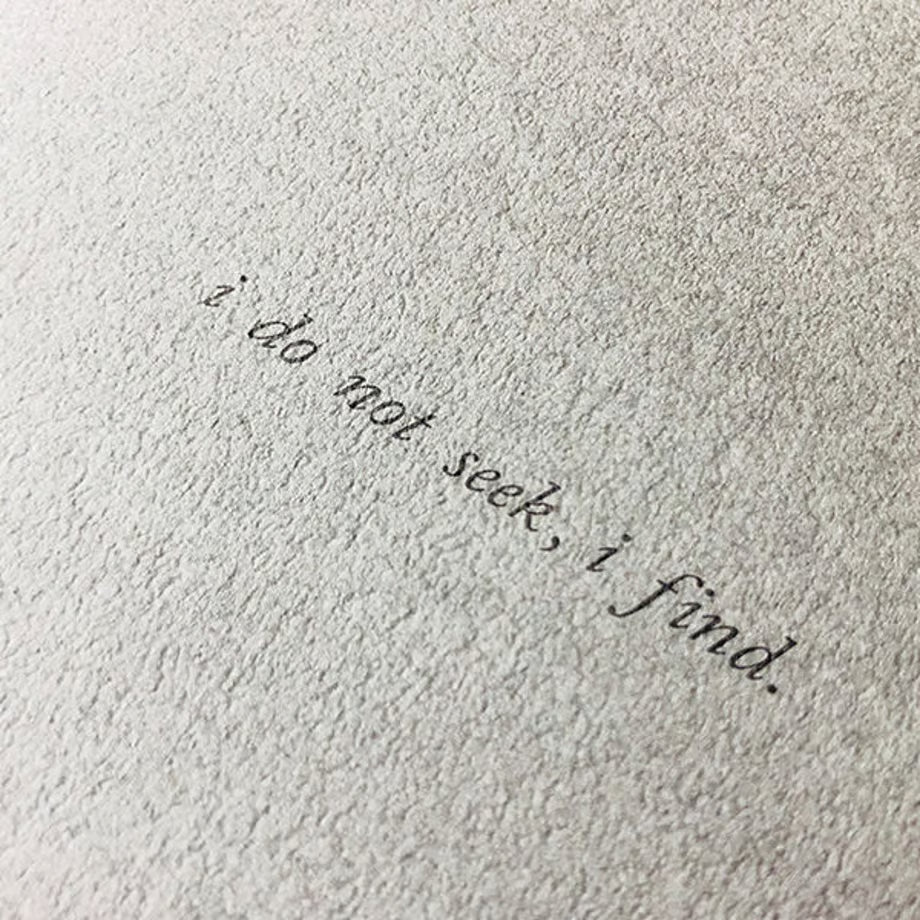 i do not seek, i find.